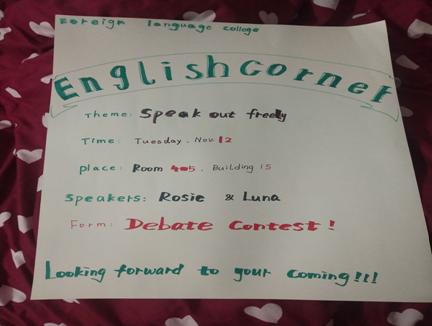 Foreign language college
English corner
Theme: Speak out freely
Time: Tuesday. Nov. 12
place: Room 405, Building 15
Speakers: Rosie & Luna
Form: Debate Contest!
Looking forward to your coming!!!